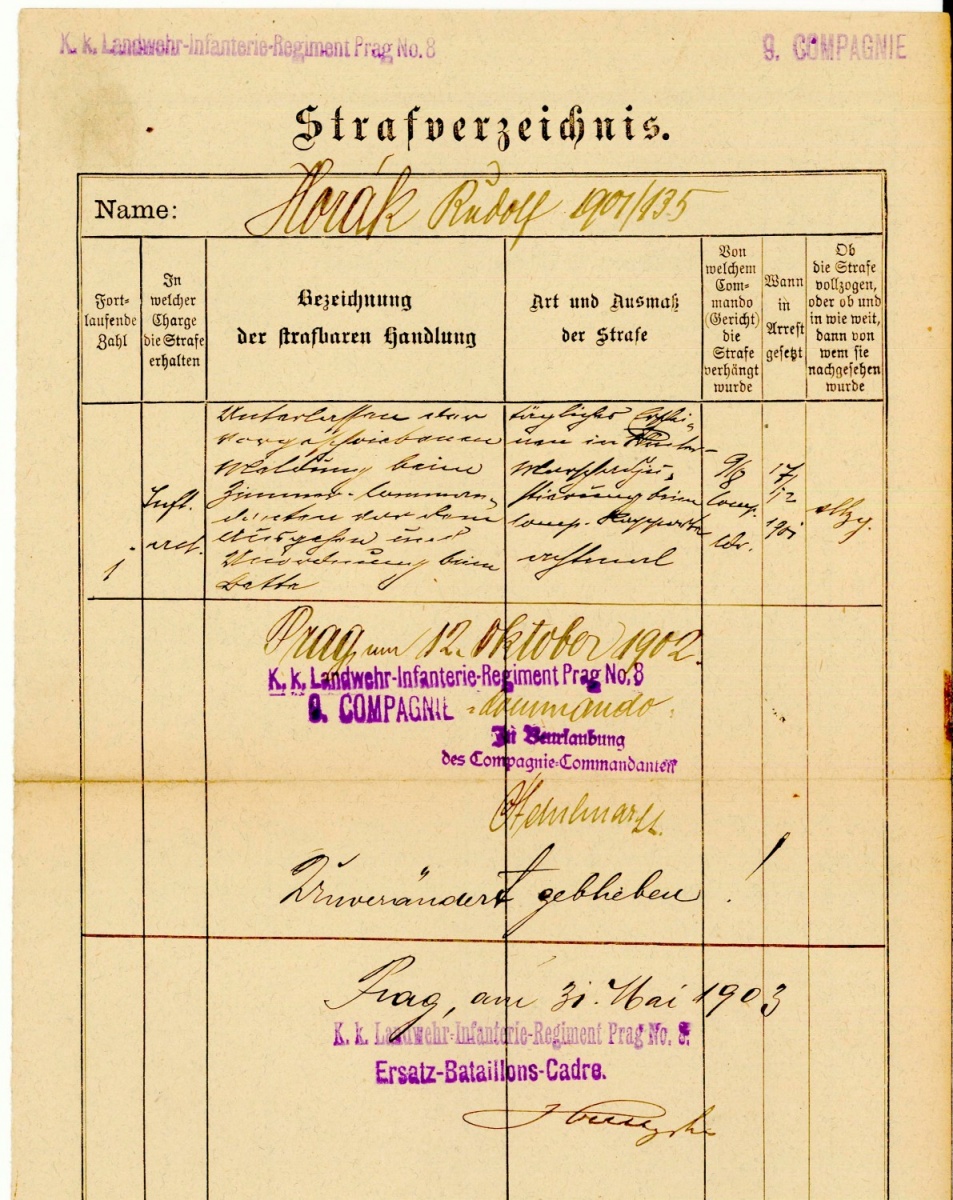 K. k. Landwehr-Infanterie-Regiment Prag No. 8
9. COMPAGNIE
Strafverzeichnis.
Name: Horák Rudolf 1901/135
Fort-
laufende
Zahl
In
welcher
Charge
die Strafe
erhalten
Bezeichnung
der strafbaren Handlung
Art und Ausmaß
der Strafe
Von
welchem
Com-
mando
(Gericht)
die
Strafe
verhängt
wurde
Wann
in
Arrest
gesetzt
Ob
die Strafe
vollzogen,
oder ob und
in wie weit,
dann von
wem sie
nachgesehen
wurde
1
Inft.
Unterlassen der
vorgeschriebenen
Meldung beim
Zimmer-Comman-
danten vor dem
Ausgehen und
Unordnung beim
Bette
tägliches Erschei-
nen in
Marschadju-
stierung beim
Comp. Rapporte
achtmal
9/8
Comp.
17/
12
901
Prag am 12. Oktober 1902.
K. k. Landwehr-Infanterie-Regiment Prag No. 8
9. COMPAGNIE -Commando.
In Beurlaubung
des Compagnie-Commandanten
Unverändert geblieben!
Prag, am 31. Mai 1903
K. k. Landwehr-Infanterie-Regiment Prag No. 8.
Ersatz-Bataillons-Cadre.